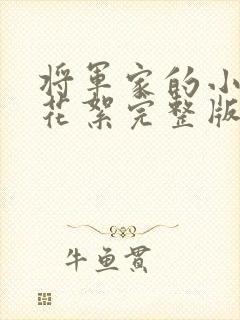 将军家的小
花絮完整版
牛鱼贯